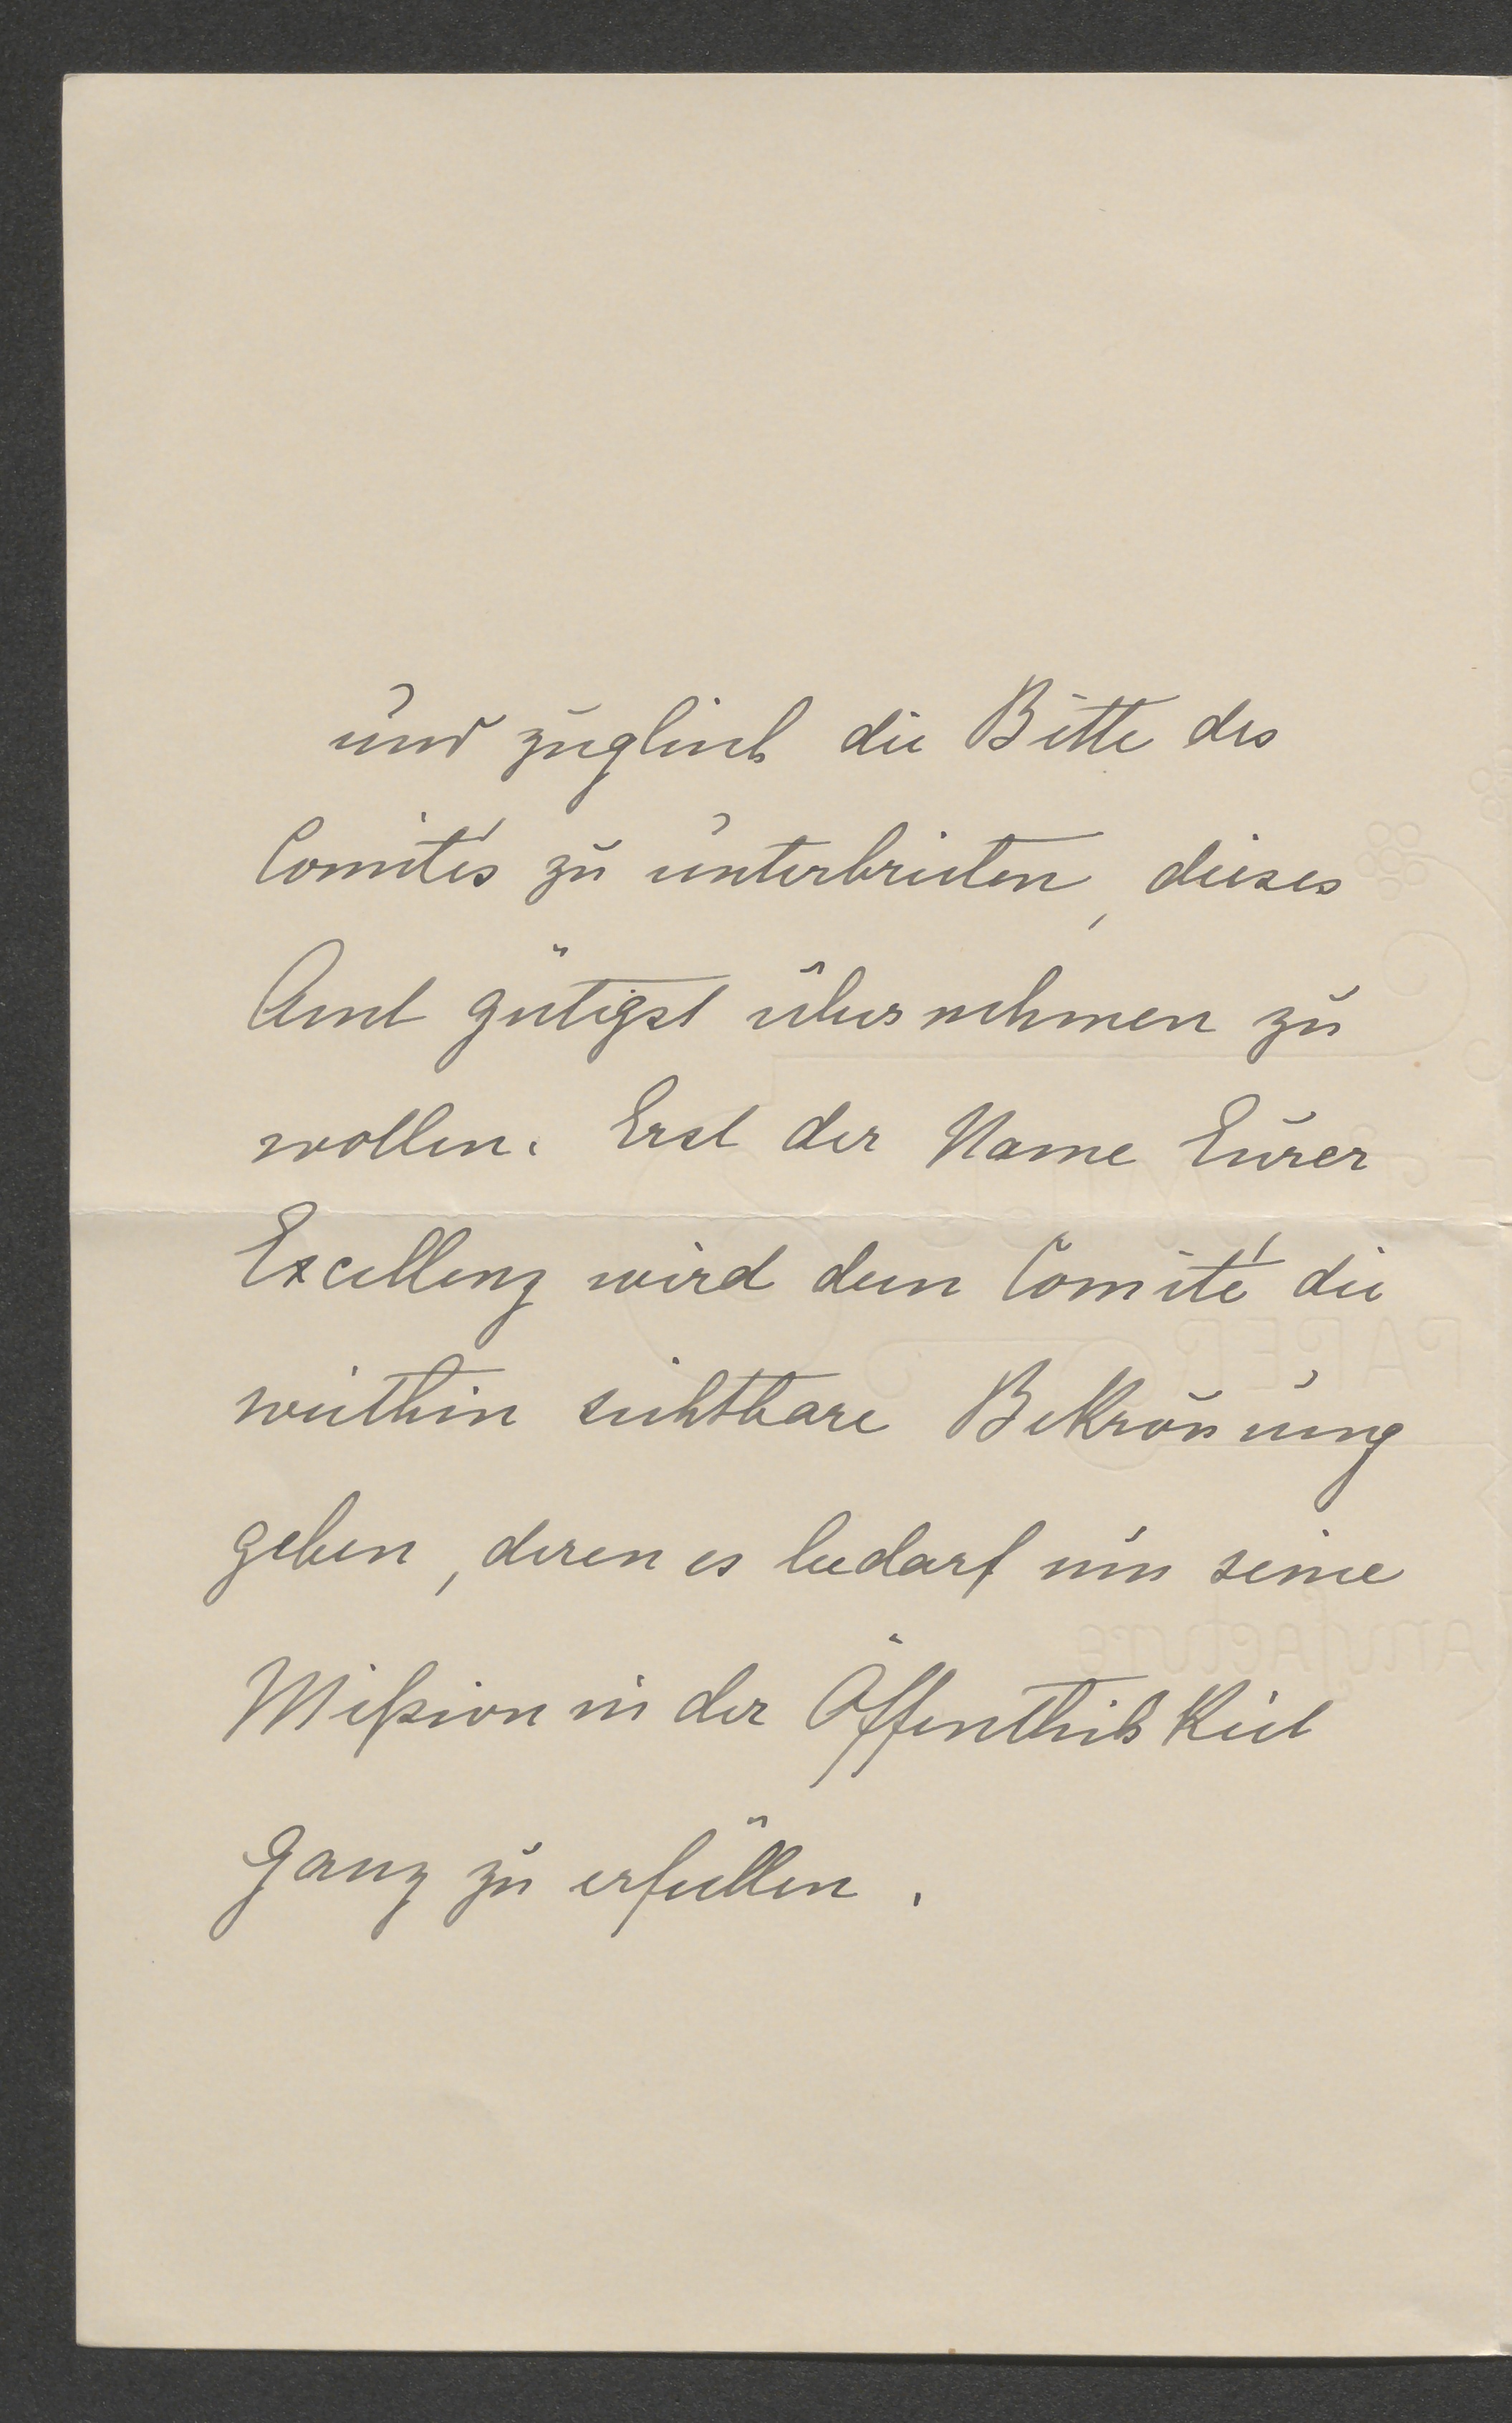 und zugleich die Bitte des
Comités zu unterbreiten, dieses
Amt gütigst übernehmen zu
wollen. Erst der Name Eurer
Excellenz wird dem Comité die
weithin sichtbare Bekrönung
geben, deren es bedarf um seine
Mißion in der Öffentlichkeit
ganz zu erfüllen.